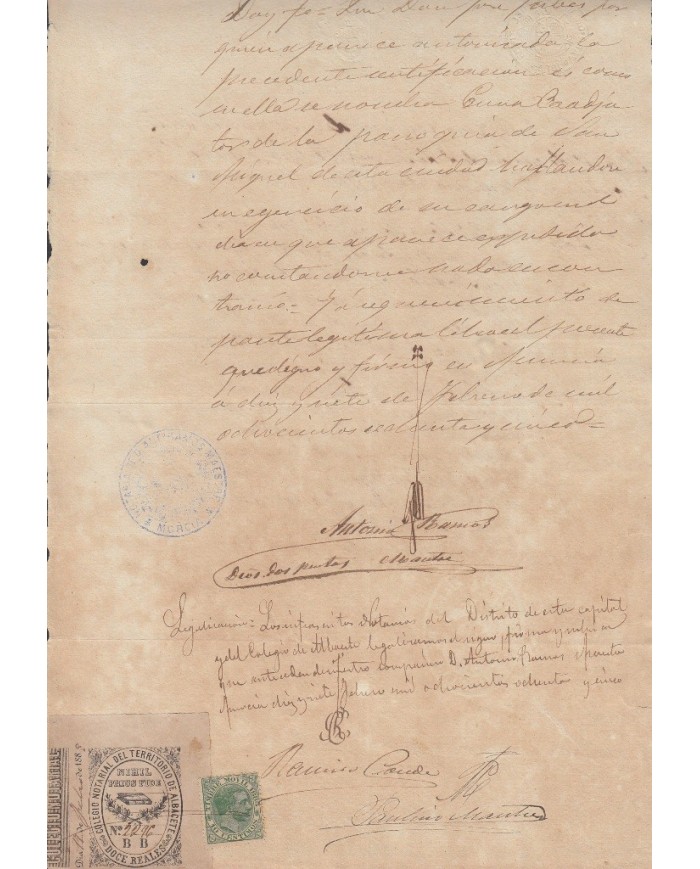 Doy fe: Que Don José por
quien aparece autorizada la
precedente certificación es como
en ella se nombra Cura Coadju
tor de la parroquia de San
Miguel de esta ciudad hallandose
en egercicio de su cargo en el
dia en que aparece expedida
no constandome nada en con
trario.= Y á requerimiento de
parte legítima libro el presente
que signo y firmo en Murcia
á diez y siete de Febrero de mil
ochocientos ochenta y cinco=
Antonio Ramos
Dros. dos pesetas Maestre
Legalizacion= Los infrascritos Notarios del Distrito de esta capital
y del Colegio de Albacete legalizamos el signo, firma y rubrica
que anteceden de nuestro compañero D. Antonio Ramos Maestre
Murcia diez y siete Febrero mil ochocientos ochenta y cinco
Ramiro Conde
MURCIA
COLEGIO NOTARIAL DEL TERRITORIO DE ALBACETE
NIHIL
PRIUS FIDE
Nº
B B
DOCE REALES
10 CENTIMOS